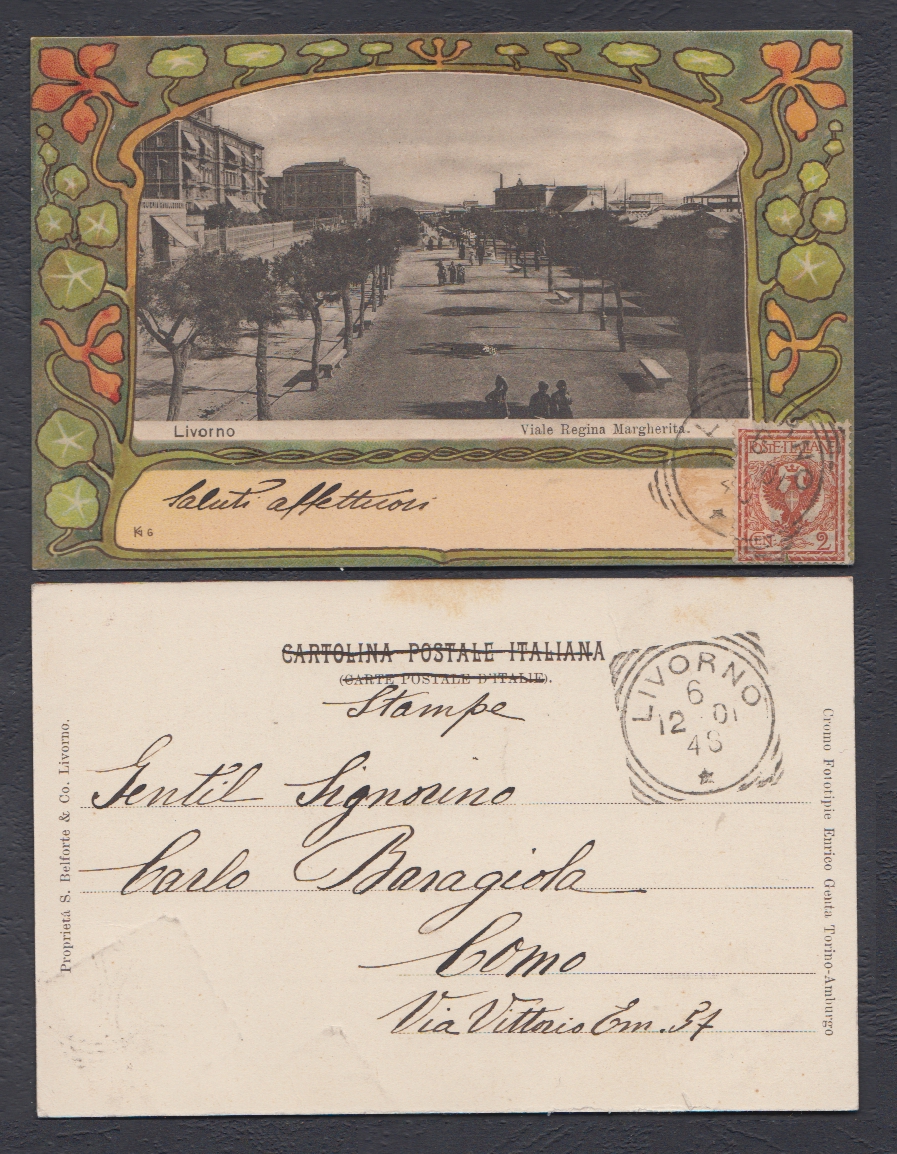 Livorno
Viale Regina Margherita.
Saluti affettuosi
KG
POSTE ITALIANE
CENT. 2
CARTOLINA POSTALE ITALIANA
(CARTE POSTALE D'ITALIE).
Stampe
LIVORNO
6
12 01
4S
Gentil Signorino
Carlo Baragiola
Como
Via Vittorio Em. 37
Proprietá S. Belforte & Co. Livorno.
Cromo Fototipie Enrico Genta Torino-Amburgo